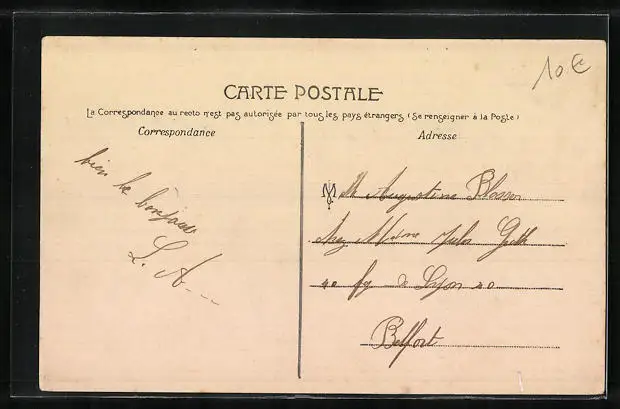 10 €
CARTE POSTALE
La Correspondance au recto n'est pas autorisée par tous les pays étrangers (Se renseigner à la Poste)
Correspondance
Adresse
bien le bonjour
L. A
Augustine
Chez Mme
40 fg de Lyon 40
Belfort